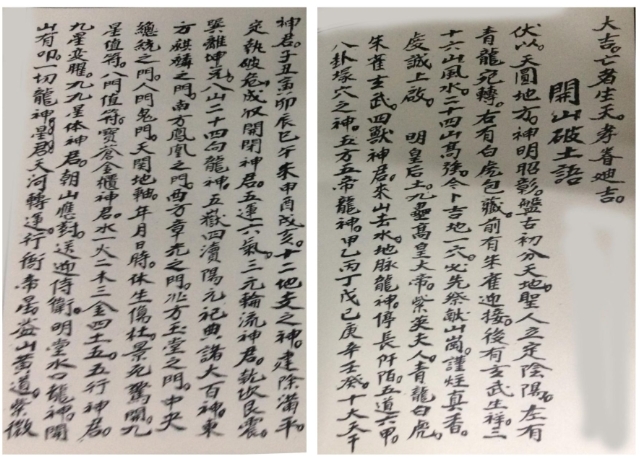 大吉。亡者生天。孝眷迪吉。
開山破土語
伏以。天圓地方。神明昭彰。盤古初分天地。聖人立定陰陽。左有
青龍宛轉。右有白虎包藏。前有朱雀迎接。後有玄武生祥。三
十六山風水。二十四山高強。今卜吉地一穴。必先祭献山崗。謹炷真香。
虔誠上啟。 明皇后土。九壘高皇大帝。紫英夫人。青龍白虎。
朱雀玄武。四獸神君。來山去水。地脉龍神。停長阡陌。五道六甲。
八卦塚穴之神。五方五帝龍神。甲乙丙丁戊己庚辛壬癸。十大天干
神君。子丑寅卯辰巳午未申酉戌亥。十二地支之神。建除滿平。
定執破危。成收開閉神君。五運六氣。三元輪流神君。乾坎艮震
巽離坤兌。八山二十四向龍神。五嶽四瀆陽元。祀典諸大百神。東
方麒麟之門。南方鳳凰之門。西方章光之門。北方玉堂之門。中央
總統之門。人門鬼門。天関地軸。年月日時。休生傷杜景死驚開。九
星值符。八門值符。寶倉金櫃神君。水一火二木三金四土五。五行神君。
九星变曜。九九星体神君。朝山應對。送迎侍衛。明堂水口龍神。開
山有。一切龍神。星君。天河轉運。行衙帝星。蓋山黃道。紫微